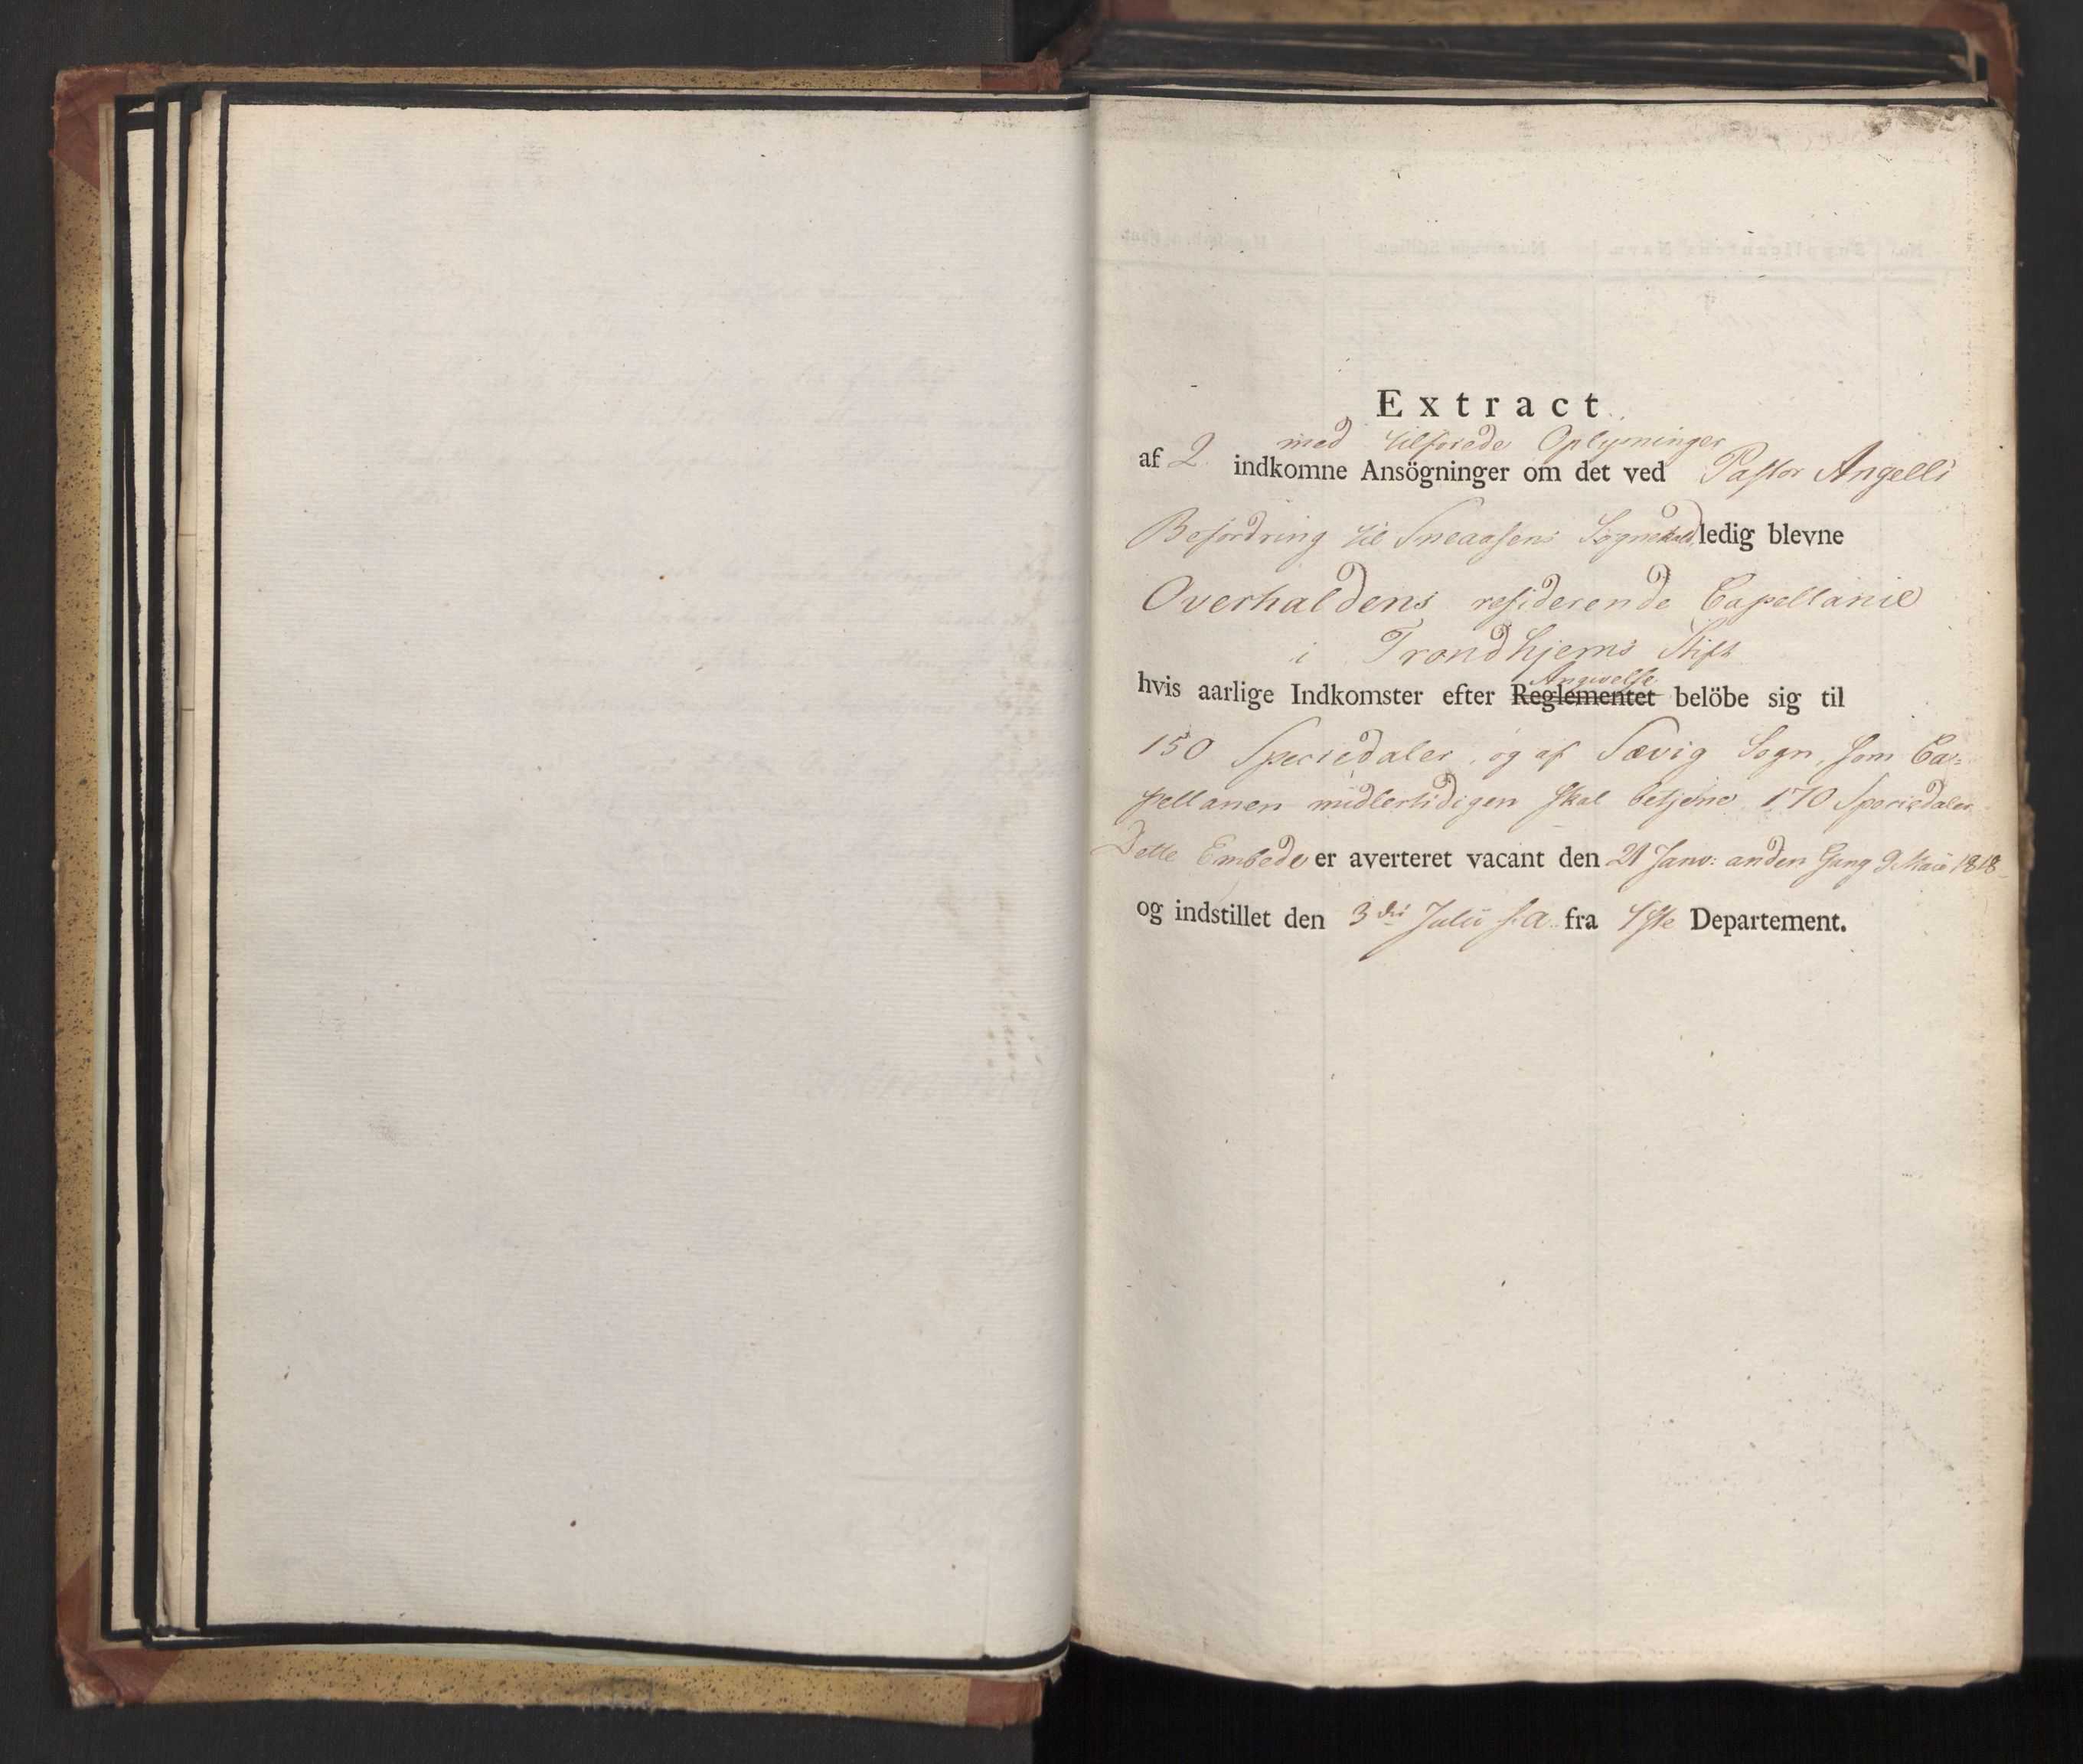 Extract
med tilføiede Oplysninger
af 2 indkomne Ansögninger om det ved Pastor Angells
Befordring til Sneaasens Sognekald ledig blevne
Overhaldens residerende Capellanie
i Trondhjems Stift
Angivelse
hvis aarlige Indkomster efter Reglementet belöbe sig til
150 Speciedaler, og af Sævig Sogn, som Ca-
pellanen midlertidigen skal betjene 170 Speciedaler
Dette Embede er averteret vacant den 21 Janv: anden Gang 9 Maii 1818
og indstillet den 3die Julii s. a. fra 1ste Departement.